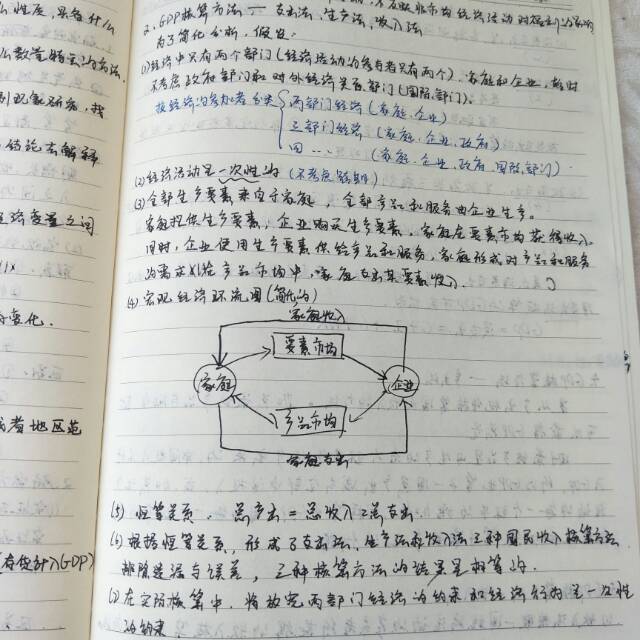 么性质，具备什么
么数量特立的方法.
2、GDP核算方法 — 支出法、生产法、收入法
为了简化分析，假定：
(1)经济中只有两个部门(经济活动的参与者只有两个)，家庭和企业，暂时
不考虑政府部门和对外经济关系部门(国际部门).
按经济的参加者分类 两部门经济(家庭、企业)
三部门经济(家庭、企业、政府)
四 …(家庭、企业、政府、国际部门).
(2)经济活动是一次性的(不考虑跨期)
(3)全部生产要素来自于家庭，全部产品和服务由企业生产。
家庭提供生产要素，企业购买生产要素，家庭在要素市场获得收入.
同时，企业使用生产要素供给产品和服务，家庭形成对产品和服务
的需求从在产品市场中，家庭支出其要素收入.
(4)宏观经济环流图(简化的)
家庭收入
要素市场
家庭
企业
产品市场
家庭支出
(5)恒等关系. 总产出=总收入=总支出
(6)根据恒等关系，形成了支出法、生产法和收入法三种国民收入核算方法
排除遗漏与误差，三种核算方法的结果是相等的.
(7)在实际核算中，将放宽两部门经济的约束和经济行为是一次性
的约束.
变化.
或者地区范
(GDP)